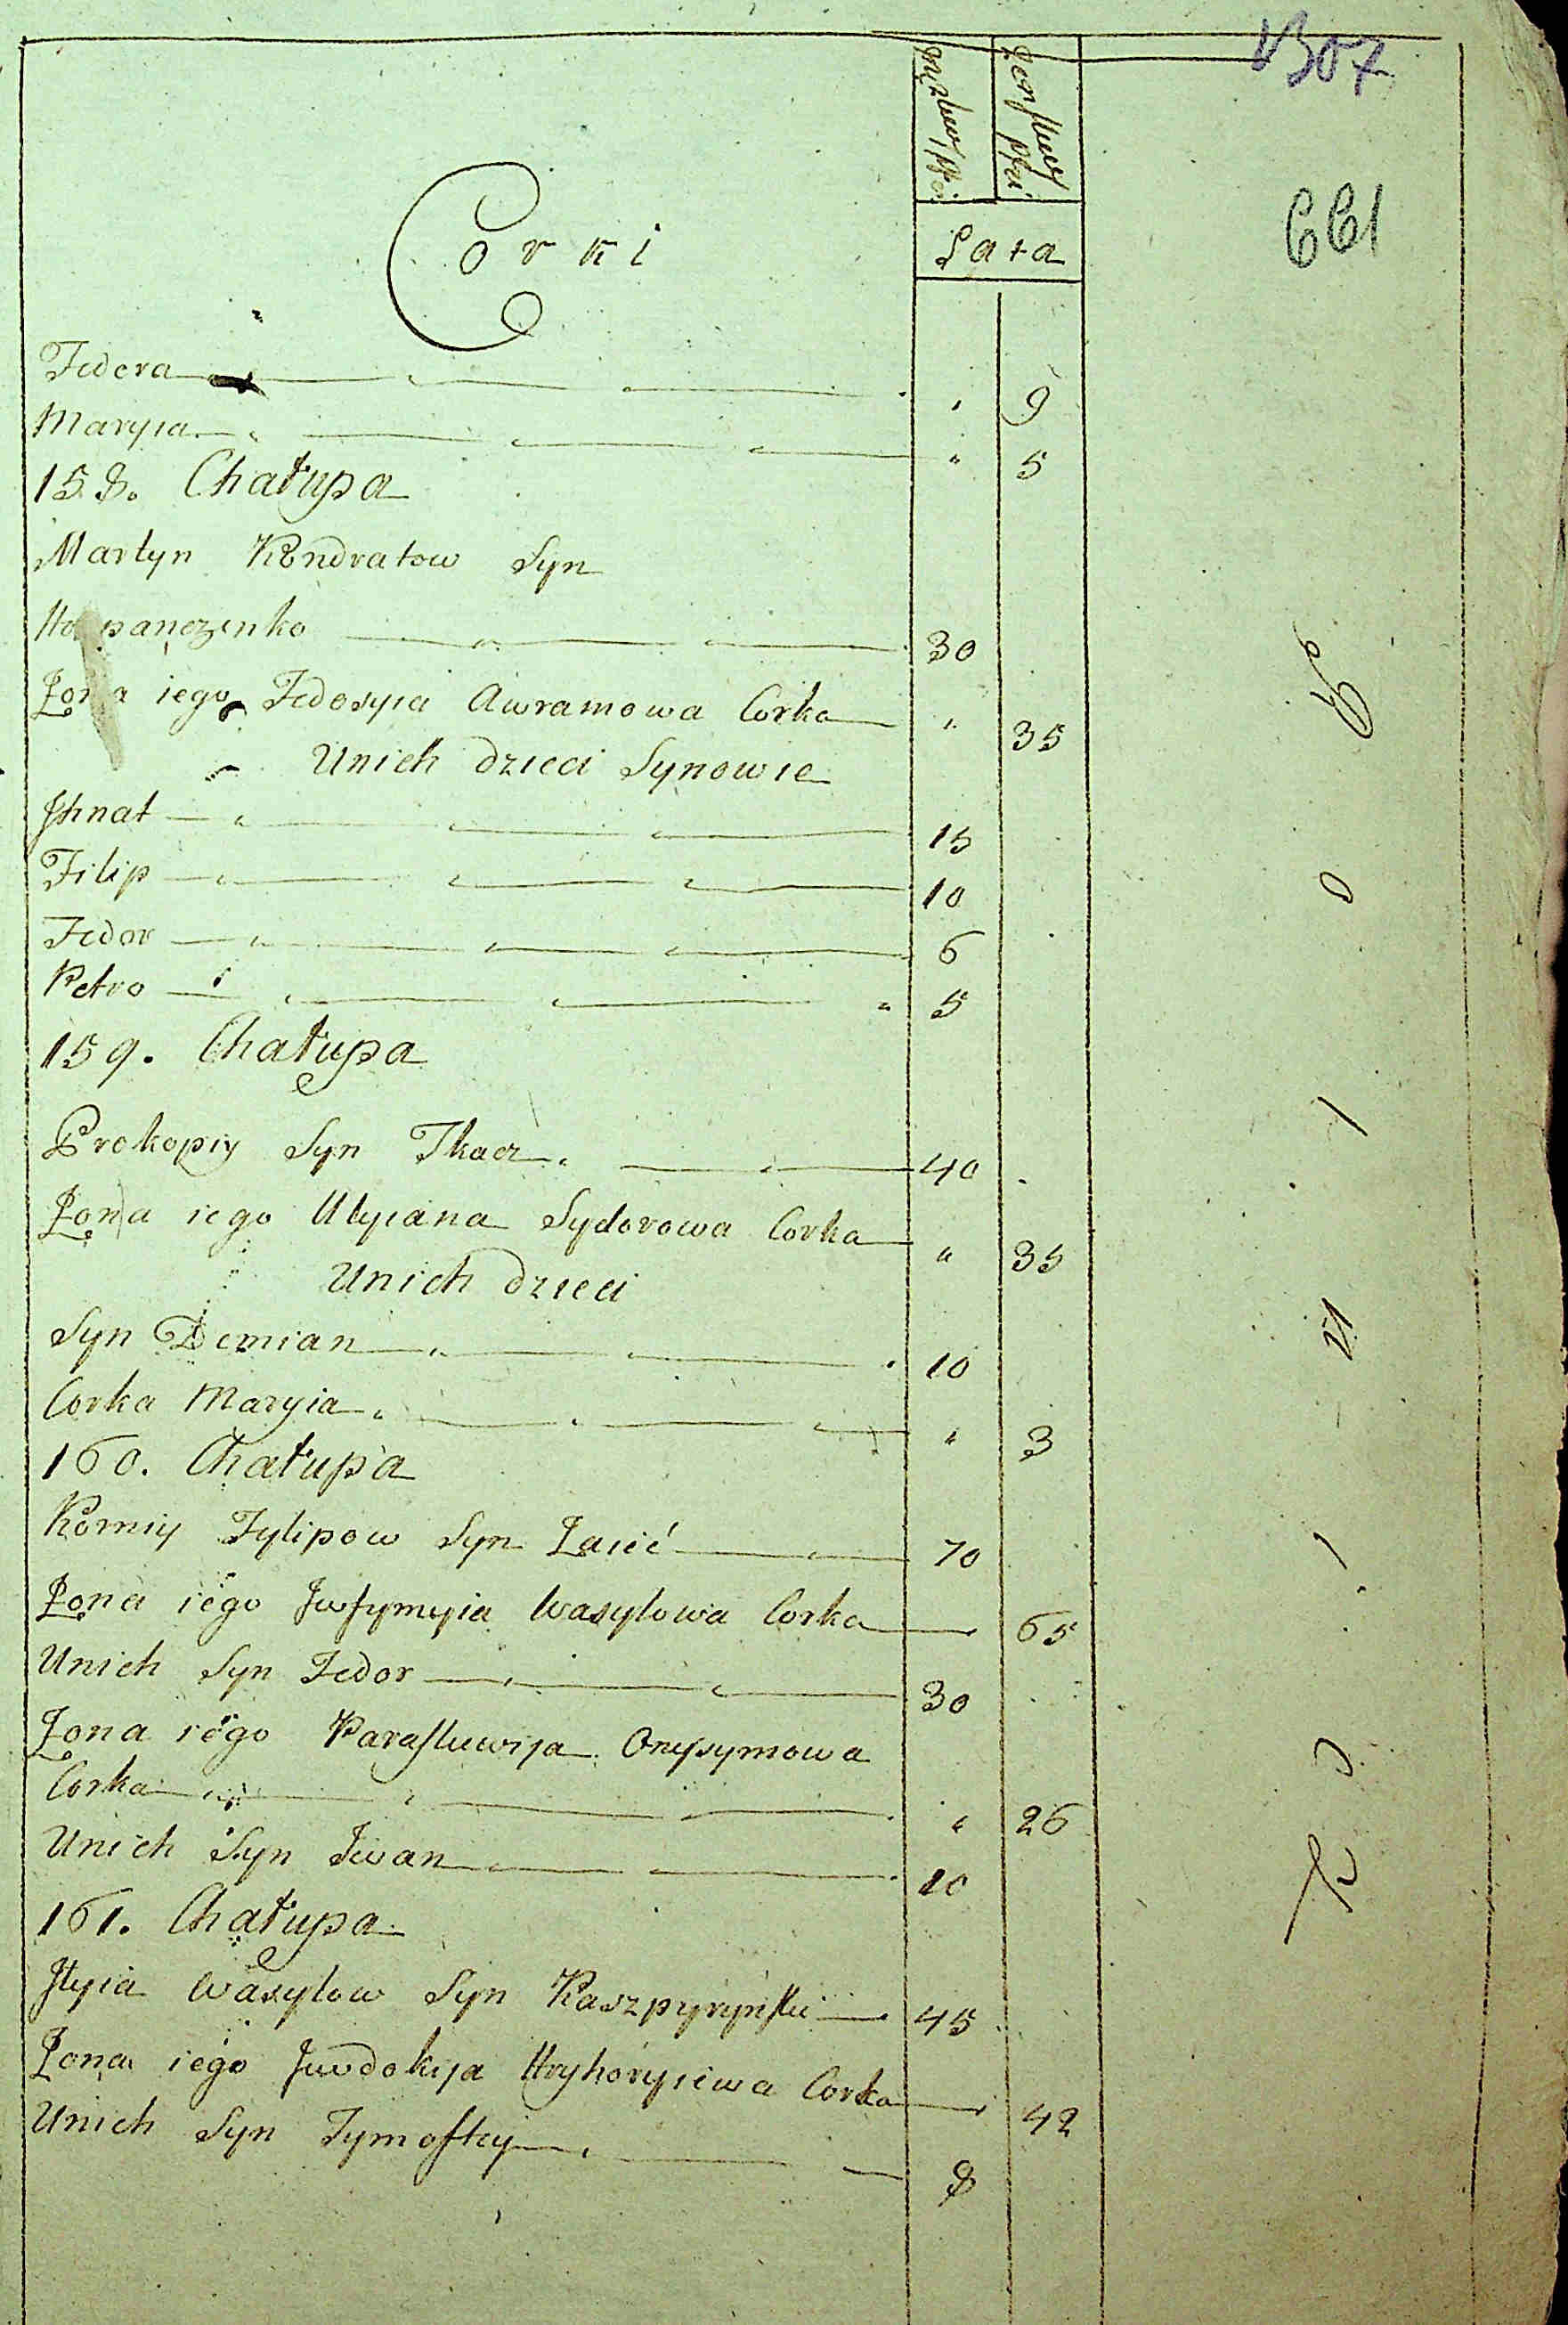 1307
661
Męzkiey płci
Żeńskiey płci
Lata
Corki
Fedora " 9
Maryia " 5
158. Chałupa
Martyn Kondratow Syn
panczenko 30
Żona iego Fedosyia Awramowa Corka " 35
Unich dzieci Synowie
Ihnat 15
Filip 10
Fedor 6
Petro 5
159. Chałupa
Prokopiy Syn Tkacz 40
Żona iego Ulyiana Sydorowa Corka " 35
Unich dzieci
Syn Demian 10
Corka Maryia " 3
160. Chałupa
Korniy Fylipow Syn Zaiić 70
Żona iego Jwfymyia Wasylowa Corka 65
Unich Syn Fedor 30
Żona iego Paraskewija Onysymowa
Corka " 26
Unich Syn Iwan 10
161. Chałupa
Ilyia Wasylow Syn Kaszpyryński 45
Żona iego Jwdokija Hryhoryiewa Corka 42
Unich Syn Tymoftey 8